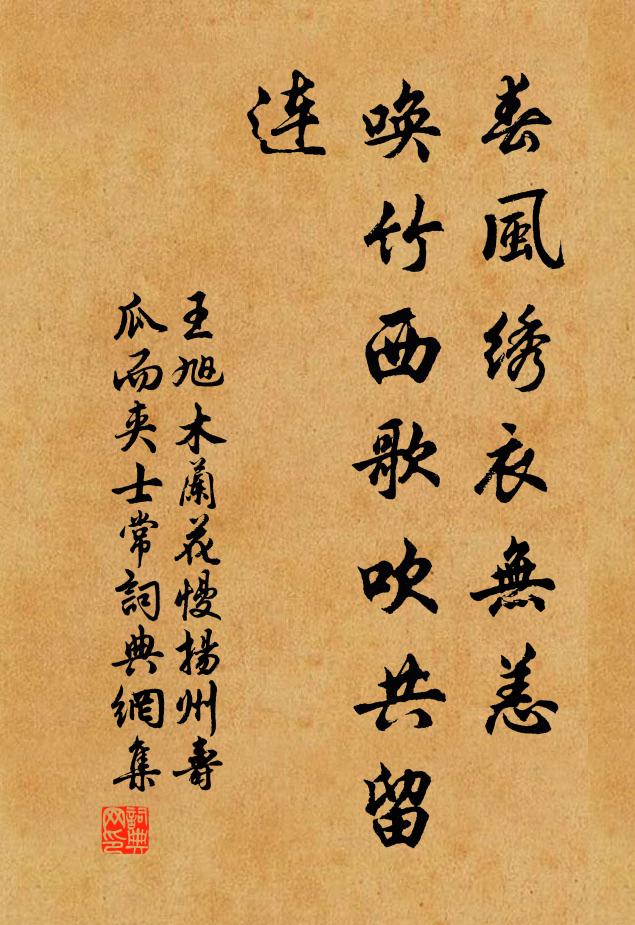 春風绣衣無恙
唤竹西歌吹共留
连
王旭木蘭花慢揚州壽
瓜而夹士常詞典網集
詞典网印